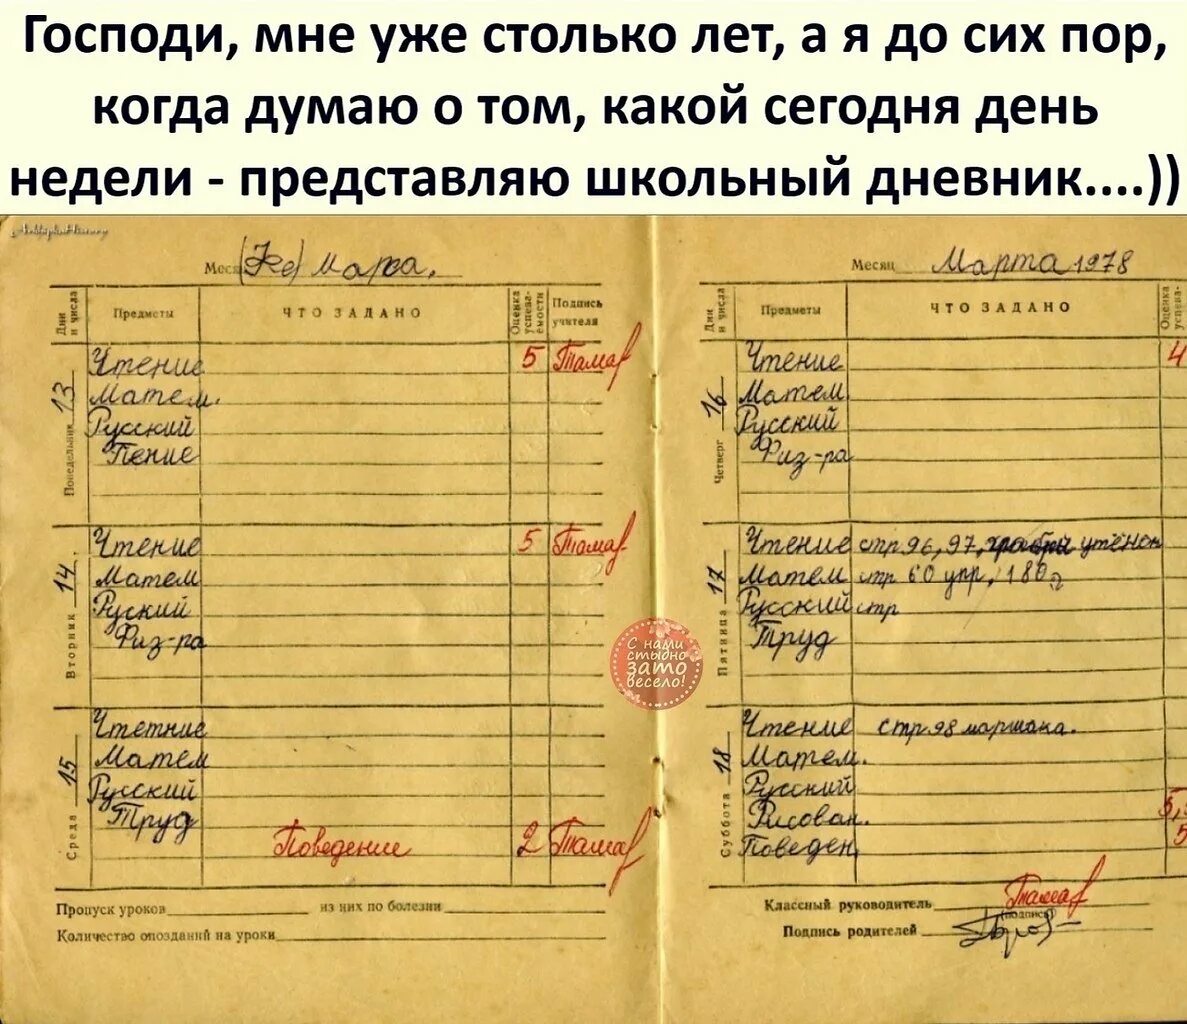 Господи, мне уже столько лет, а я до сих пор,
когда думаю о том, какой сегодня день
недели - представляю школьный дневник....))
Месяц Марта.
Дни и числа
Предметы
ЧТО ЗАДАНО
Оценка успева-емости
Подпись учителя
Понедельник 13
Чтение 5
Матем.
Русский
Пение
Вторник 14
Чтение 5
Матем
Руский
Физ-ра
Среда 15
Чтетние
Матем
Русский
Труд
Поведение 2
Пропуск уроков из них по болезни
Количество опозданий на уроки
С нами
стыдно
зато
весело!
Месяц Марта 1978
Дни и числа
Предметы
ЧТО ЗАДАНО
Оценка успева-
Четверг 16
Чтение 4
Матем
Русский
Физ-ра
Пятница 17
Чтение стр 96, 97, утёнок
Матем стр 60 упр, 180
Русский стр
Труд
Суббота 18
Чтение стр 98 маршака.
Матем.
Русский
Рисован. 5
Поведен 5
Классный руководитель
(подпись)
Подпись родителей